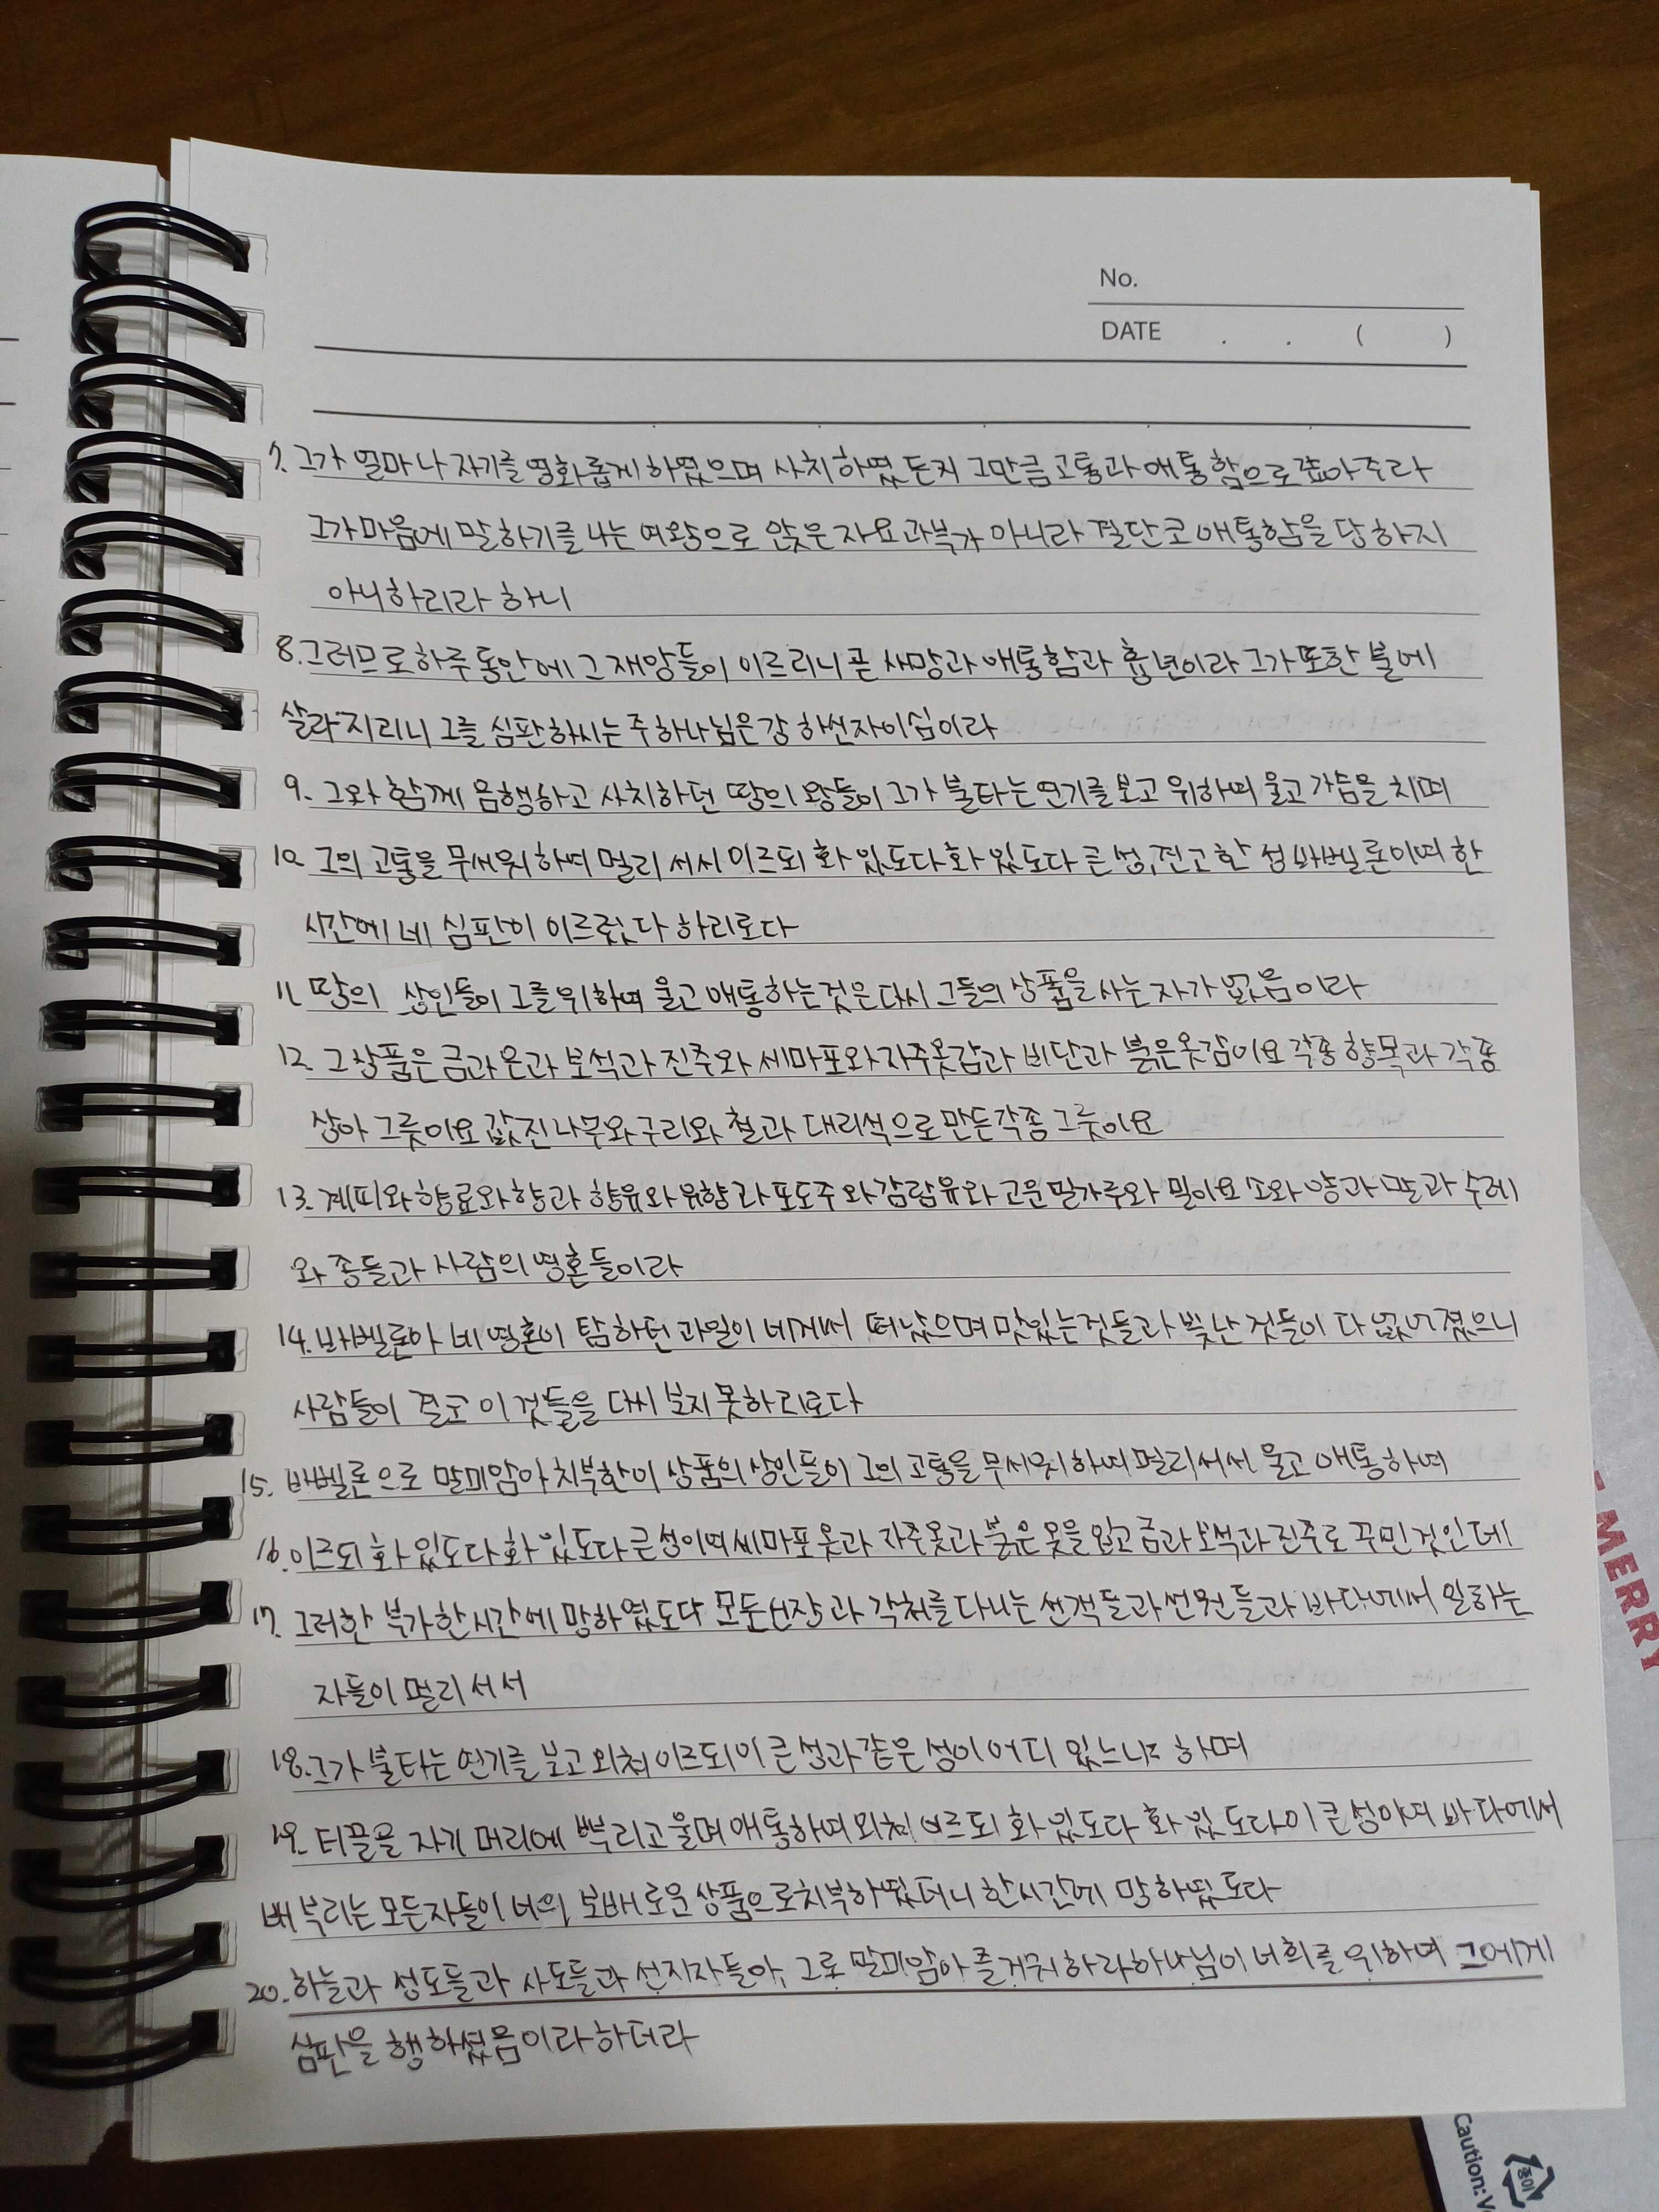 No.
DATE . . ( )
7. 그가 얼마나 자기를 영화롭게 하였으며 사치하였든지 그만큼 고통과 애통함으로 갚아주라
그가 마음에 말하기를 나는 여왕으로 앉은 자요 과부가 아니라 결단코 애통함을 당하지
아니하리라 하니
8. 그러므로 하루 동안에 그 재앙들이 이르리니 곧 사망과 애통함과 흉년이라 그가 또한 불에
살라지리니 그를 심판하시는 주 하나님은 강하신 자이심이라
9. 그와 함께 음행하고 사치하던 땅의 왕들이 그가 불타는 연기를 보고 위하여 울고 가슴을 치며
10. 그의 고통을 무서워하여 멀리 서서 이르되 화 있도다 화 있도다 큰 성, 견고한 성 바벨론이여 한
시간에 네 심판이 이르렀다 하리로다
11. 땅의 상인들이 그를 위하여 울고 애통하는 것은 다시 그들의 상품을 사는 자가 없음이라
12. 그 상품은 금과 은과 보석과 진주와 세마포와 자주 옷감과 비단과 붉은 옷감이요 각종 향목과 각종
상아 그릇이요 값진 나무와 구리와 철과 대리석으로 만든 각종 그릇이요
13. 계피와 향료와 향과 향유와 유향과 포도주와 감람유와 고운 밀가루와 밀이요 소와 양과 말과 수레
와 종들과 사람의 영혼들이라
14. 바벨론아 네 영혼이 탐하던 과일이 네게서 떠났으며 맛있는 것들과 빛난 것들이 다 없어졌으니
사람들이 결코 이것들을 다시 보지 못하리로다
15. 바벨론으로 말미암아 치부한 이 상품의 상인들이 그의 고통을 무서워하여 멀리 서서 울고 애통하여
16. 이르되 화 있도다 화 있도다 큰 성이여 세마포 옷과 자주 옷과 붉은 옷을 입고 금과 보석과 진주로 꾸민 것인데
17. 그러한 부가 한 시간에 망하였도다 모든 선장과 각처를 다니는 선객들과 선원들과 바다에서 일하는
자들이 멀리 서서
18. 그가 불타는 연기를 보고 외쳐 이르되 이 큰 성과 같은 성이 어디 있느냐 하며
19. 티끌을 자기 머리에 뿌리고 울며 애통하여 외쳐 이르되 화 있도다 화 있도다 이 큰 성이여 바다에서
배 부리는 모든 자들이 너의 보배로운 상품으로 치부하였더니 한 시간에 망하였도다
20. 하늘과 성도들과 사도들과 선지자들아, 그로 말미암아 즐거워하라 하나님이 너희를 위하여 그에게
심판을 행하셨음이라 하더라
MERRY
Caution:
종이